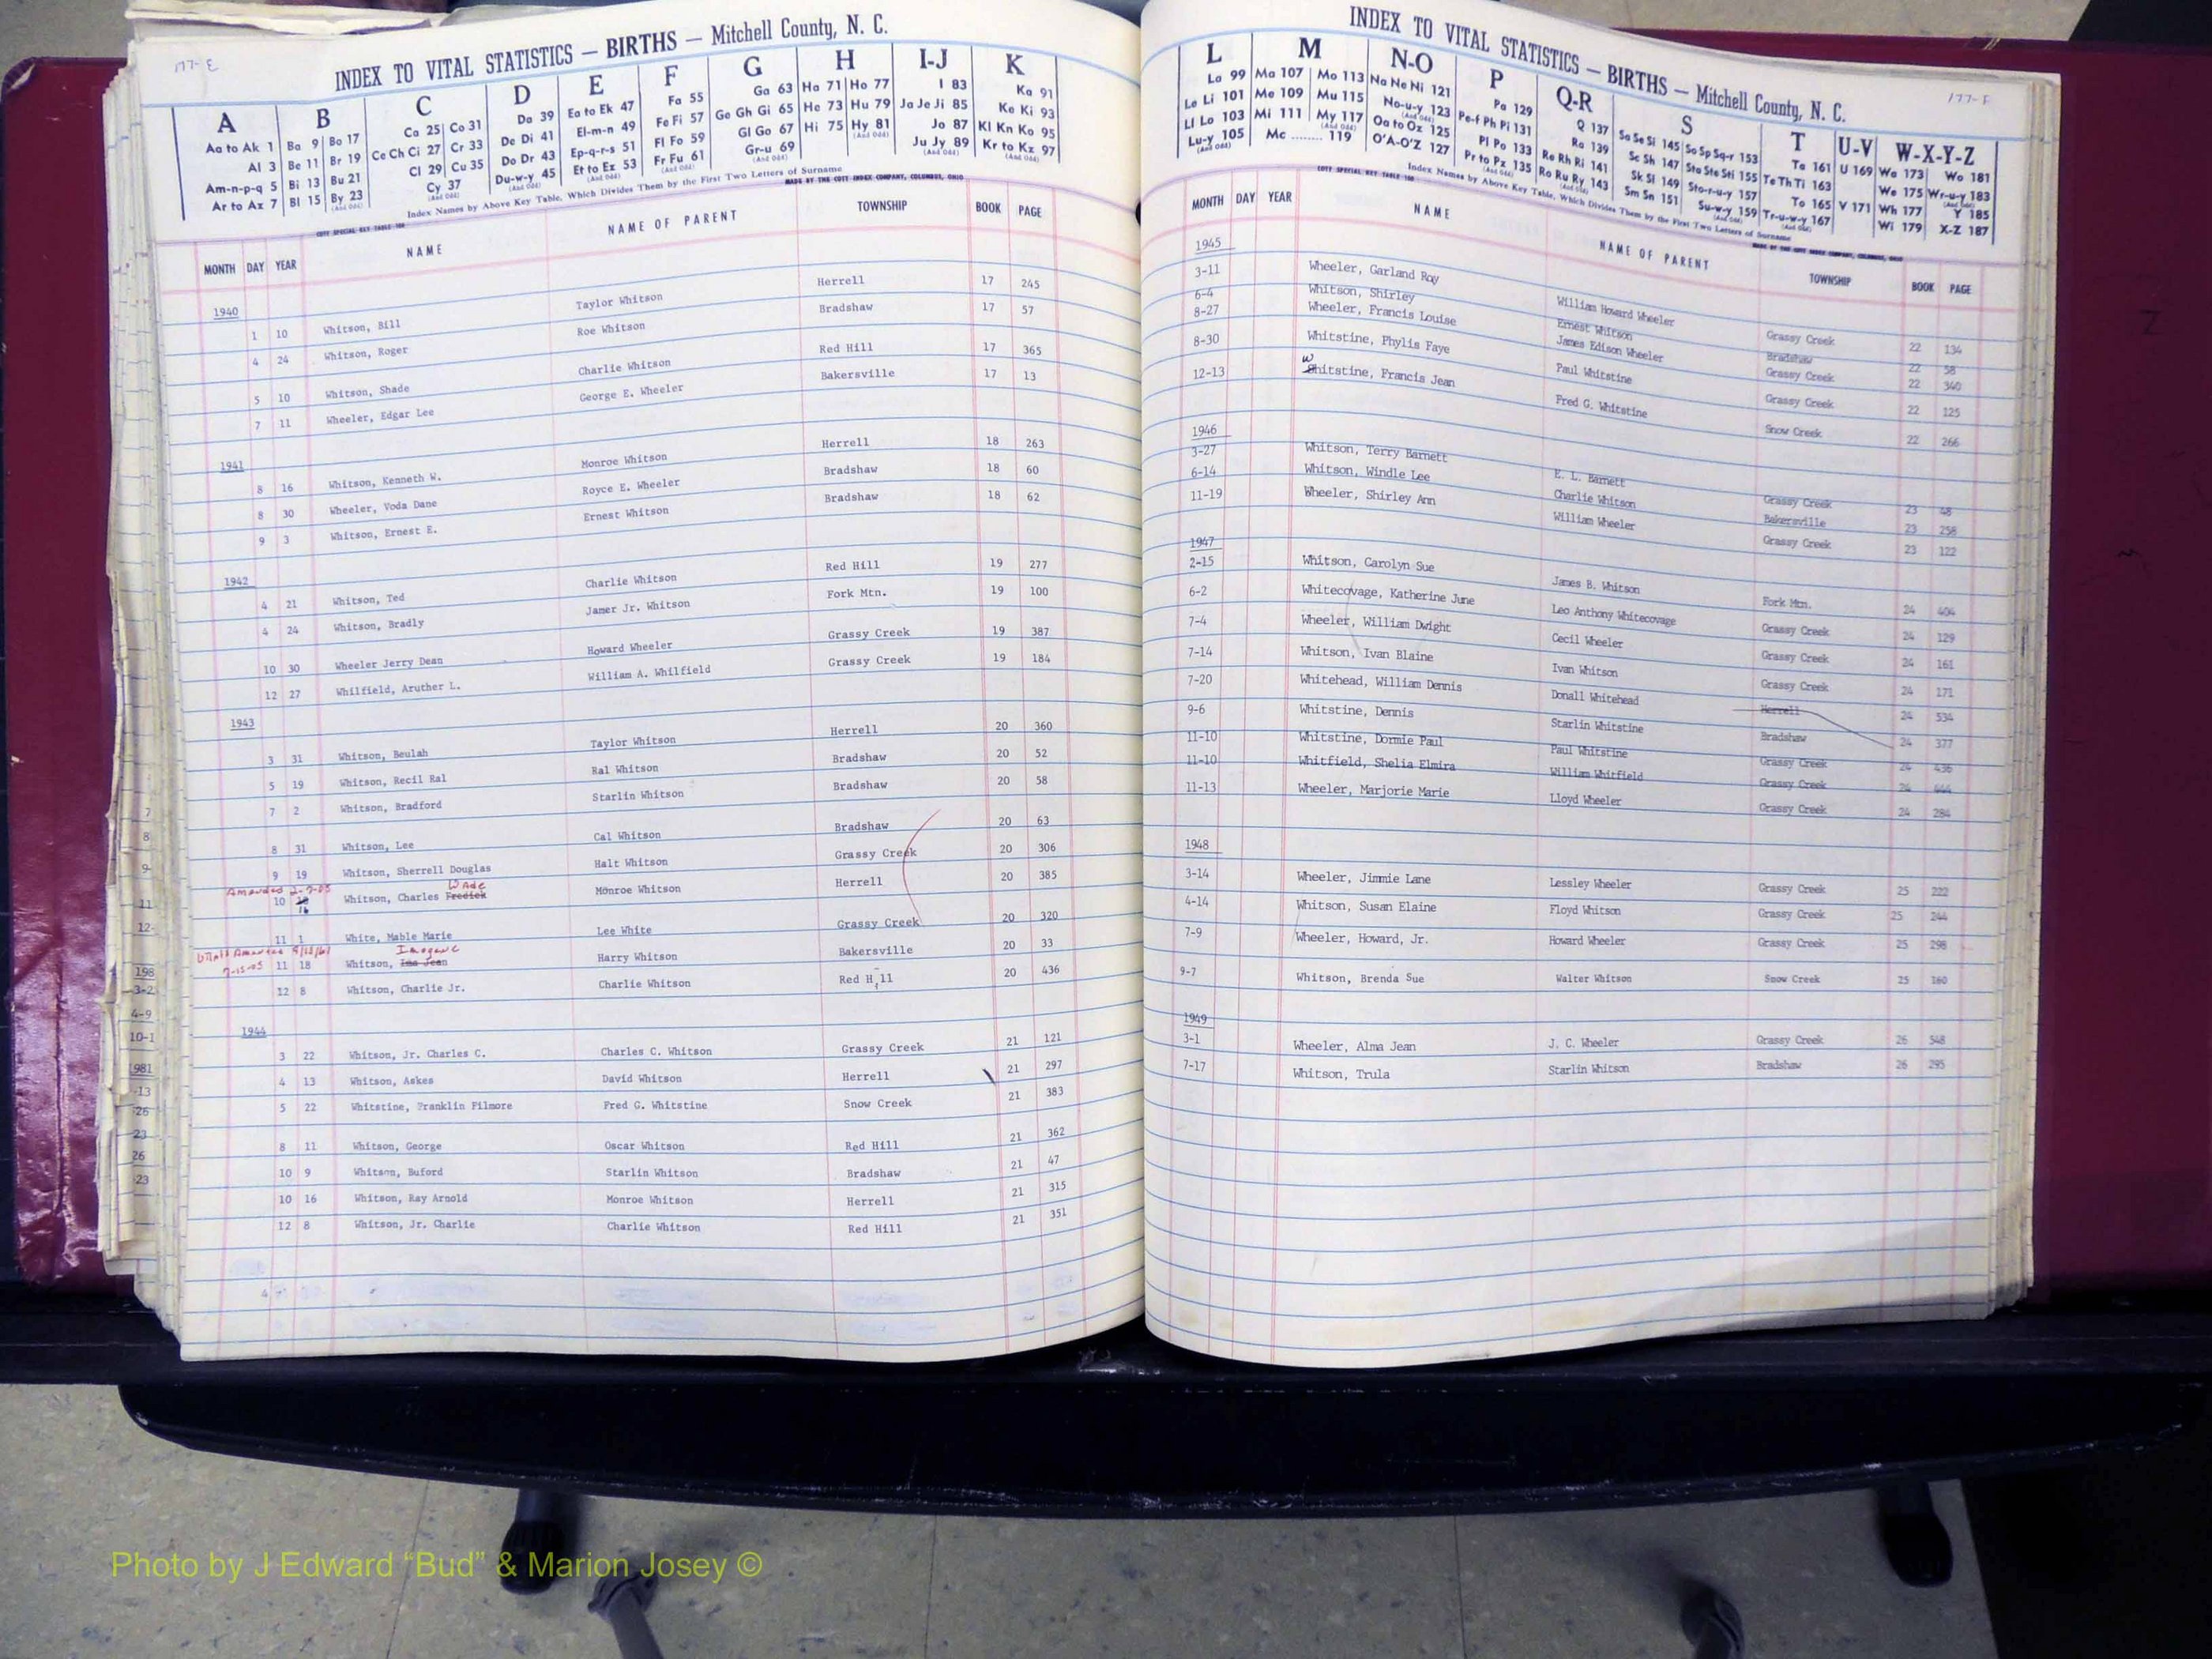 177-E
INDEX TO VITAL STATISTICS — BIRTHS — Mitchell County, N. C.
A B C D E F G H I-J K
Aa to Ak 1 Ba 9 Bo 17 Ca 25 Co 31 Da 39 Ea to Ek 47 Fa 55 Ga 63 Ha 71 Ho 77 I 83 Ka 91
Al 3 Be 11 Br 19 Ce Ch Ci 27 Cr 33 De Di 41 El-m-n 49 Fe Fi 57 Ge Gh Gi 65 He 73 Hu 79 Ja Je Ji 85 Ke Ki 93
Am-n-p-q 5 Bi 13 Bu 21 Cl 29 Cu 35 Do Dr 43 Ep-q-r-s 51 Fl Fo 59 Gl Go 67 Hi 75 Hy 81 (And Odd) Jo 87 Kl Kn Ko 95
Ar to Az 7 Bl 15 By 23 (And Odd) Cy 37 (And Odd) Du-w-y 45 (And Odd) Et to Ez 53 Fr Fu 61 (And Odd) Gr-u 69 (And Odd) Ju Jy 89 (And Odd) Kr to Kz 97
Index Names by Above Key Table, Which Divides Them by the First Two Letters of Surname
COTT SPECIAL KEY TABLE 188 MADE BY THE COTT INDEX COMPANY, COLUMBUS, OHIO
MONTH DAY YEAR NAME NAME OF PARENT TOWNSHIP BOOK PAGE
1940
1 10 Whitson, Bill Taylor Whitson Herrell 17 245
4 24 Whitson, Roger Roe Whitson Bradshaw 17 57
5 10 Whitson, Shade Charlie Whitson Red Hill 17 365
7 11 Wheeler, Edgar Lee George E. Wheeler Bakersville 17 13
1941
8 16 Whitson, Kenneth W. Monroe Whitson Herrell 18 263
8 30 Wheeler, Voda Dane Royce E. Wheeler Bradshaw 18 60
9 3 Whitson, Ernest E. Ernest Whitson Bradshaw 18 62
1942
4 21 Whitson, Ted Charlie Whitson Red Hill 19 277
4 24 Whitson, Bradly Jamer Jr. Whitson Fork Mtn. 19 100
10 30 Wheeler Jerry Dean Howard Wheeler Grassy Creek 19 387
12 27 Whilfield, Aruther L. William A. Whilfield Grassy Creek 19 184
1943
3 31 Whitson, Beulah Taylor Whitson Herrell 20 360
5 19 Whitson, Recil Ral Ral Whitson Bradshaw 20 52
7 2 Whitson, Bradford Starlin Whitson Bradshaw 20 58
8 31 Whitson, Lee Cal Whitson Bradshaw 20 63
9 19 Whitson, Sherrell Douglas Halt Whitson Grassy Creek 20 306
Amended 2-7-05 Wade
10 16 Whitson, Charles Fredick Monroe Whitson Herrell 20 385
11 1 White, Mable Marie Lee White Grassy Creek 20 320
Amended Imogene
7-15-05 11 18 Whitson, Ima Jean Harry Whitson Bakersville 20 33
12 8 Whitson, Charlie Jr. Charlie Whitson Red Hill 20 436
1944
3 22 Whitson, Jr. Charles C. Charles C. Whitson Grassy Creek 21 121
4 13 Whitson, Askes David Whitson Herrell 21 297
5 22 Whitstine, Franklin Filmore Fred G. Whitstine Snow Creek 21 383
8 11 Whitson, George Oscar Whitson Red Hill 21 362
10 9 Whitson, Buford Starlin Whitson Bradshaw 21 47
10 16 Whitson, Ray Arnold Monroe Whitson Herrell 21 315
12 8 Whitson, Jr. Charlie Charlie Whitson Red Hill 21 351
7
8
9-
11
12-
198
3-2
4-9
10-1
1981
-13
-26
23
26
23
177-F
INDEX TO VITAL STATISTICS — BIRTHS — Mitchell County, N. C.
L M N-O P Q-R S T U-V W-X-Y-Z
La 99 Ma 107 Mo 113 Na Ne Ni 121 Pa 129 Q 137 Sa Se Si 145 So Sp Sq-r 153 Ta 161 U 169 Wa 173 Wo 181
Le Li 101 Me 109 Mu 115 No-u-y 123 (And Odd) Pe-f Ph Pi 131 Ra 139 Sc Sh 147 Sta Ste Sti 155 Te Th Ti 163 V 171 We 175 Wr-u-y 183 (And Odd)
Ll Lo 103 Mi 111 My 117 (And Odd) Oa to Oz 125 Pl Po 133 Re Rh Ri 141 Sk Sl 149 Sto-r-u-y 157 To 165 Wh 177 Y 185
Lu-y 105 (And Odd) Mc ........ 119 O'A-O'Z 127 Pr to Pz 135 Ro Ru Ry 143 (And Odd) Sm Sn 151 Su-w-y 159 (And Odd) Tr-u-w-y 167 (And Odd) Wi 179 X-Z 187
Index Names by Above Key Table, Which Divides Them by the First Two Letters of Surname
COTT SPECIAL KEY TABLE 188 MADE BY THE COTT INDEX COMPANY, COLUMBUS, OHIO
MONTH DAY YEAR NAME NAME OF PARENT TOWNSHIP BOOK PAGE
1945
3-11 Wheeler, Garland Roy William Howard Wheeler Grassy Creek 22 134
6-4 Whitson, Shirley Ernest Whitson Bradshaw 22 58
8-27 Wheeler, Francis Louise James Edison Wheeler Grassy Creek 22 340
8-30 Whitstine, Phylis Faye Paul Whitstine Grassy Creek 22 125
12-13 Whitstine, Francis Jean Fred G. Whitstine Snow Creek 22 266
1946
3-27 Whitson, Terry Barnett E. L. Barnett Grassy Creek 23 48
6-14 Whitson, Windle Lee Charlie Whitson Bakersville 23 258
11-19 Wheeler, Shirley Ann William Wheeler Grassy Creek 23 122
1947
2-15 Whitson, Carolyn Sue James B. Whitson Fork Mtn. 24 404
6-2 Whitecovage, Katherine June Leo Anthony Whitecovage Grassy Creek 24 129
7-4 Wheeler, William Dwight Cecil Wheeler Grassy Creek 24 161
7-14 Whitson, Ivan Blaine Ivan Whitson Grassy Creek 24 171
7-20 Whitehead, William Dennis Donall Whitehead Herrell 24 534
9-6 Whitstine, Dennis Starlin Whitstine Bradshaw 24 377
11-10 Whitstine, Dormie Paul Paul Whitstine Grassy Creek 24 436
11-10 Whitfield, Shelia Elmira William Whitfield Grassy Creek 24 444
11-13 Wheeler, Marjorie Marie Lloyd Wheeler Grassy Creek 24 284
1948
3-14 Wheeler, Jimmie Lane Lessley Wheeler Grassy Creek 25 222
4-14 Whitson, Susan Elaine Floyd Whitson Grassy Creek 25 244
7-9 Wheeler, Howard, Jr. Howard Wheeler Grassy Creek 25 298
9-7 Whitson, Brenda Sue Walter Whitson Snow Creek 25 160
1949
3-1 Wheeler, Alma Jean J. C. Wheeler Grassy Creek 26 548
7-17 Whitson, Trula Starlin Whitson Bradshaw 26 295
Photo by J Edward “Bud” & Marion Josey ©